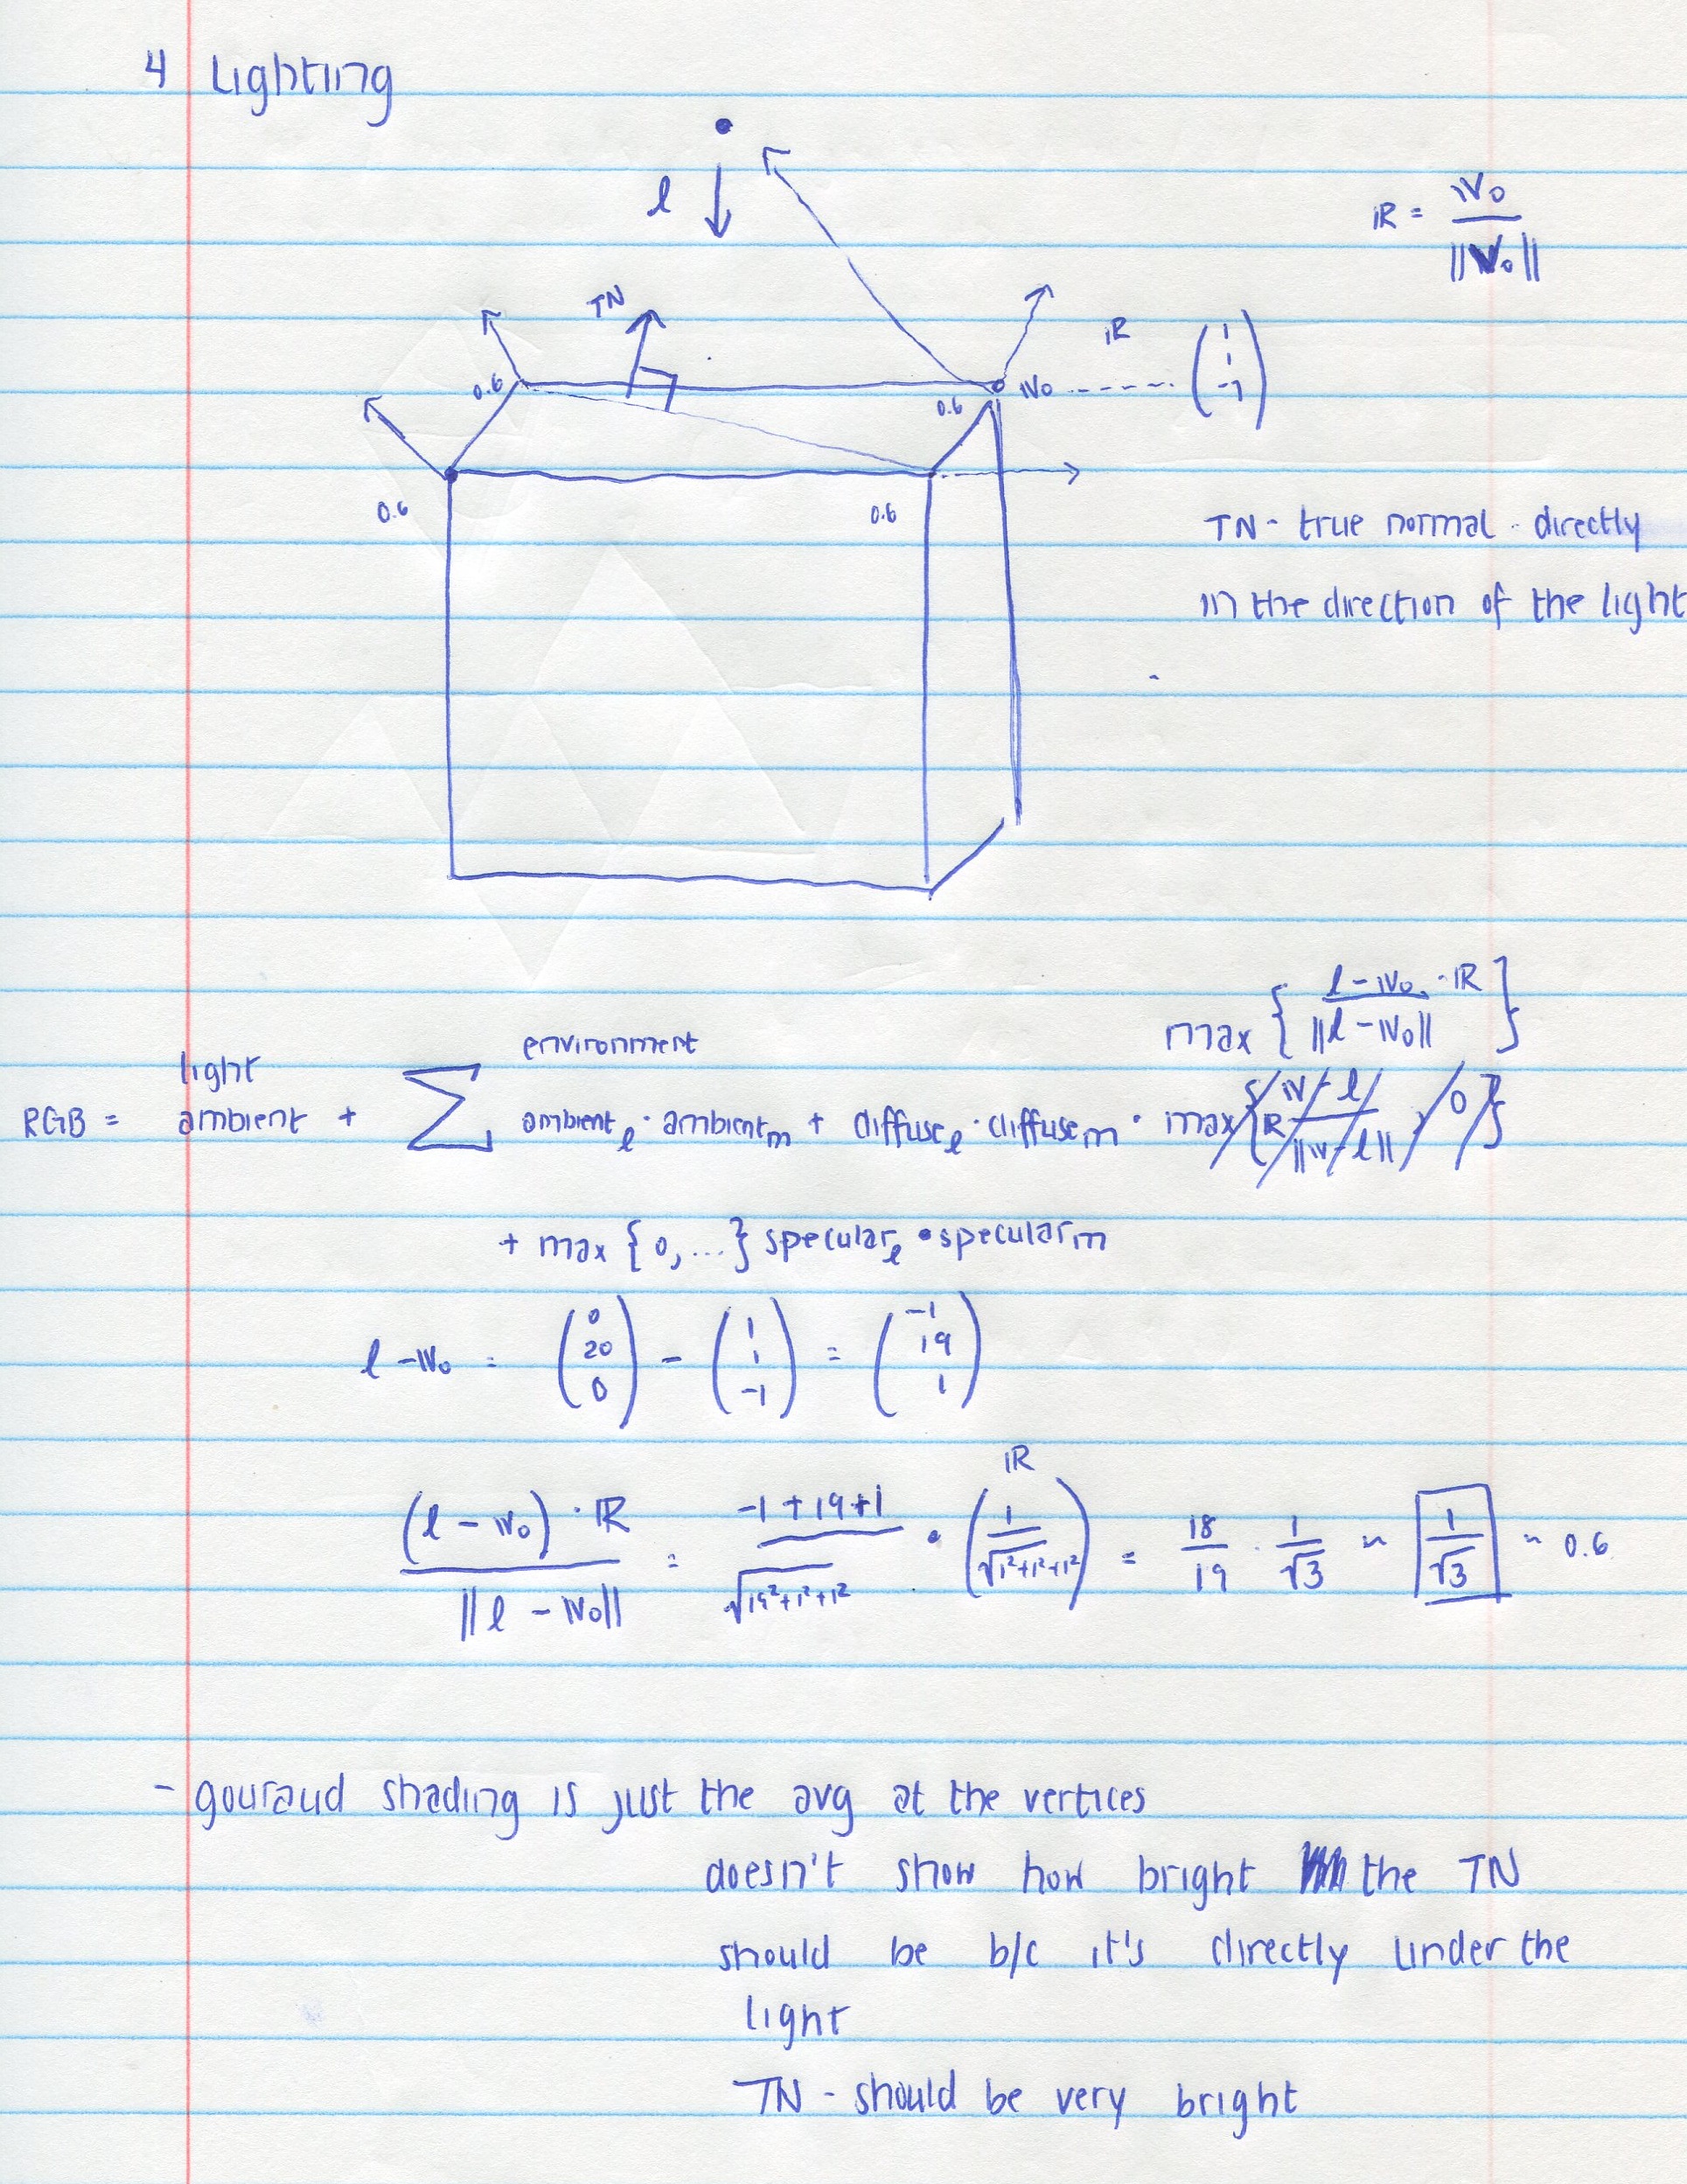 4 Lighting
l
IR = V₀ / ||V₀||
TN
0.6
IR
V₀ ------ (1 1 -1)
0.6
0.6
0.6
TN - true normal - directly
in the direction of the light
max { l - V₀ / ||l - V₀|| · IR }
light
environment
RGB = ambient + Σ ambient_l · ambient_m + diffuse_l · diffuse_m · max { IR V - l / ||V - l|| , 0 }
+ max {0, ...} specular_l • specular_m
l - V₀ = (0 20 0) - (1 1 -1) = (-1 19 1)
IR
(l - V₀) · IR / ||l - V₀|| = -1 + 19 + 1 / √19²+1²+1² • (1 / √1²+1²+1²) = 18/19 · 1/√3 ~ 1/√3 ~ 0.6
- gouraud shading is just the avg at the vertices
doesn't show how bright the TN
should be b/c it's directly under the
light
TN - should be very bright